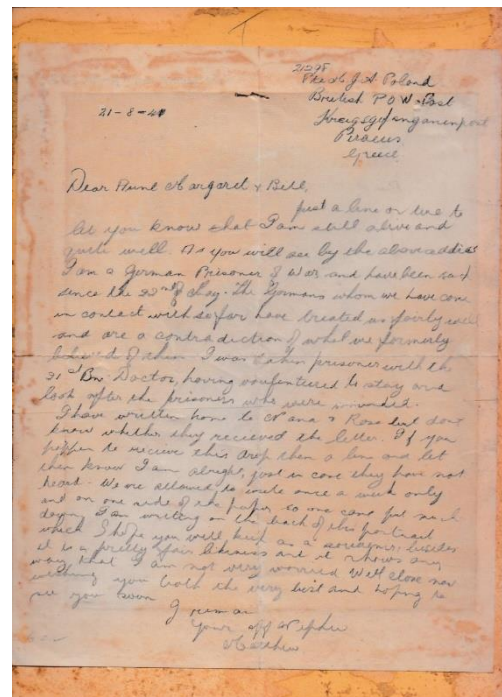 21298
J. A. Poland
British P O W Post
Kreigsgefangenenpost
Piraeus
Greece
21-8-41
Dear Aunt Margaret & Bill,
just a line or two to
let you know that I am still alive and
quite well. As you will see by the above address
I am a German Prisoner of War and have been such
since the 22nd of May. The Germans whom we have come
in contact with so far have treated us fairly well
and are a contradiction of what we formerly
of them. I was taken prisoner with the
21st Bn. Doctor, having volunteered to stay and
look after the prisoners who were wounded.
I have written home to Nana & Rose but dont
know whether they recieved the letter. If you
happen to recieve this drop them a line and let
them know I am alright, just in case they have not
heard. We are allowed to write once a week only
and on one side of the paper so one cant put much
down. I am writing on the back of this portrait
which I hope you will keep as a souvenir, besides
it is a pretty fair likeness and it shows any
way that I am not very worried. Well close now
wishing you both the very best and hoping to
see you soon
I remain
Your aff Nephew